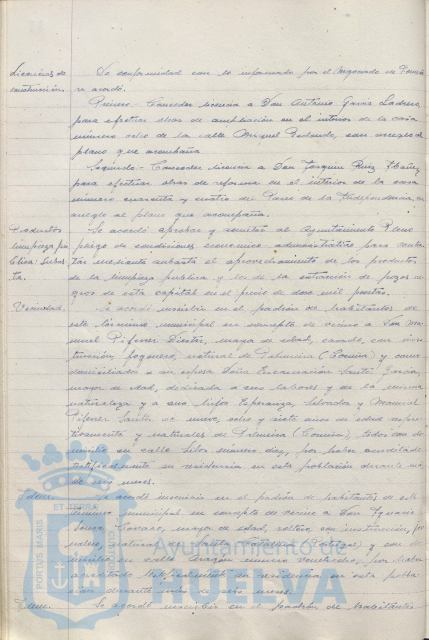 Licencias de construcción.
De conformidad con lo informado por el Negociado de Fomento se acordó.
Primero.- Conceder licencia a Don Antonio García Ladrera
para efectuar obras de ampliación en el interior de la casa
número ocho de la calle Miguel Redondo, con arreglo al
plano que acompaña.
Segundo.- Conceder licencia a Don Joaquín Ruiz Ibáñez
para efectuar obras de reforma en el interior de la casa
número cuarenta y cuatro del Paseo de la Independencia, con
arreglo al plano que acompaña.
Productos limpieza pública: Subasta.
Se acordó aprobar y remitir al Ayuntamiento Pleno
pliego de condiciones económico-administrativas para contratar
mediante subasta el aprovechamiento de los productos
de la limpieza pública y los de la extracción de pozos negros
de esta capital en el precio de doce mil pesetas.
Vecindad.
Se acordó inscribir en el padrón de habitantes de
este término municipal en concepto de vecino a Don Manuel
mayor de edad, casado, con instrucción,
fogonero, natural de Palmeira (Coruña) y como
domiciliados a su esposa Doña Encarnación Santos García,
mayor de edad, dedicada a sus labores y de la misma
naturaleza y a sus hijos Esperanza, Salvador y Manuel
Santos de nueve, ocho y siete años de edad respectivamente
y naturales de Palmeira (Coruña), todos con domicilio
en calle Silos número diez, por haber acreditado
testificalmente su residencia en esta población durante más
de seis meses.
Idem.
Se acordó inscribir en el padrón de habitantes de este
término municipal en concepto de vecino a Don Ignacio
mayor de edad, soltero, con instrucción,
natural de Santa Catalina (Portugal) y con domicilio
en calle Aragón número veintiocho, por haber
acreditado testificalmente su residencia en esta población
durante más de seis meses.
Idem.
Se acordó inscribir en el padrón de habitantes
PORTUS MARIS ET TERRAE
Ayuntamiento de
HUELVA